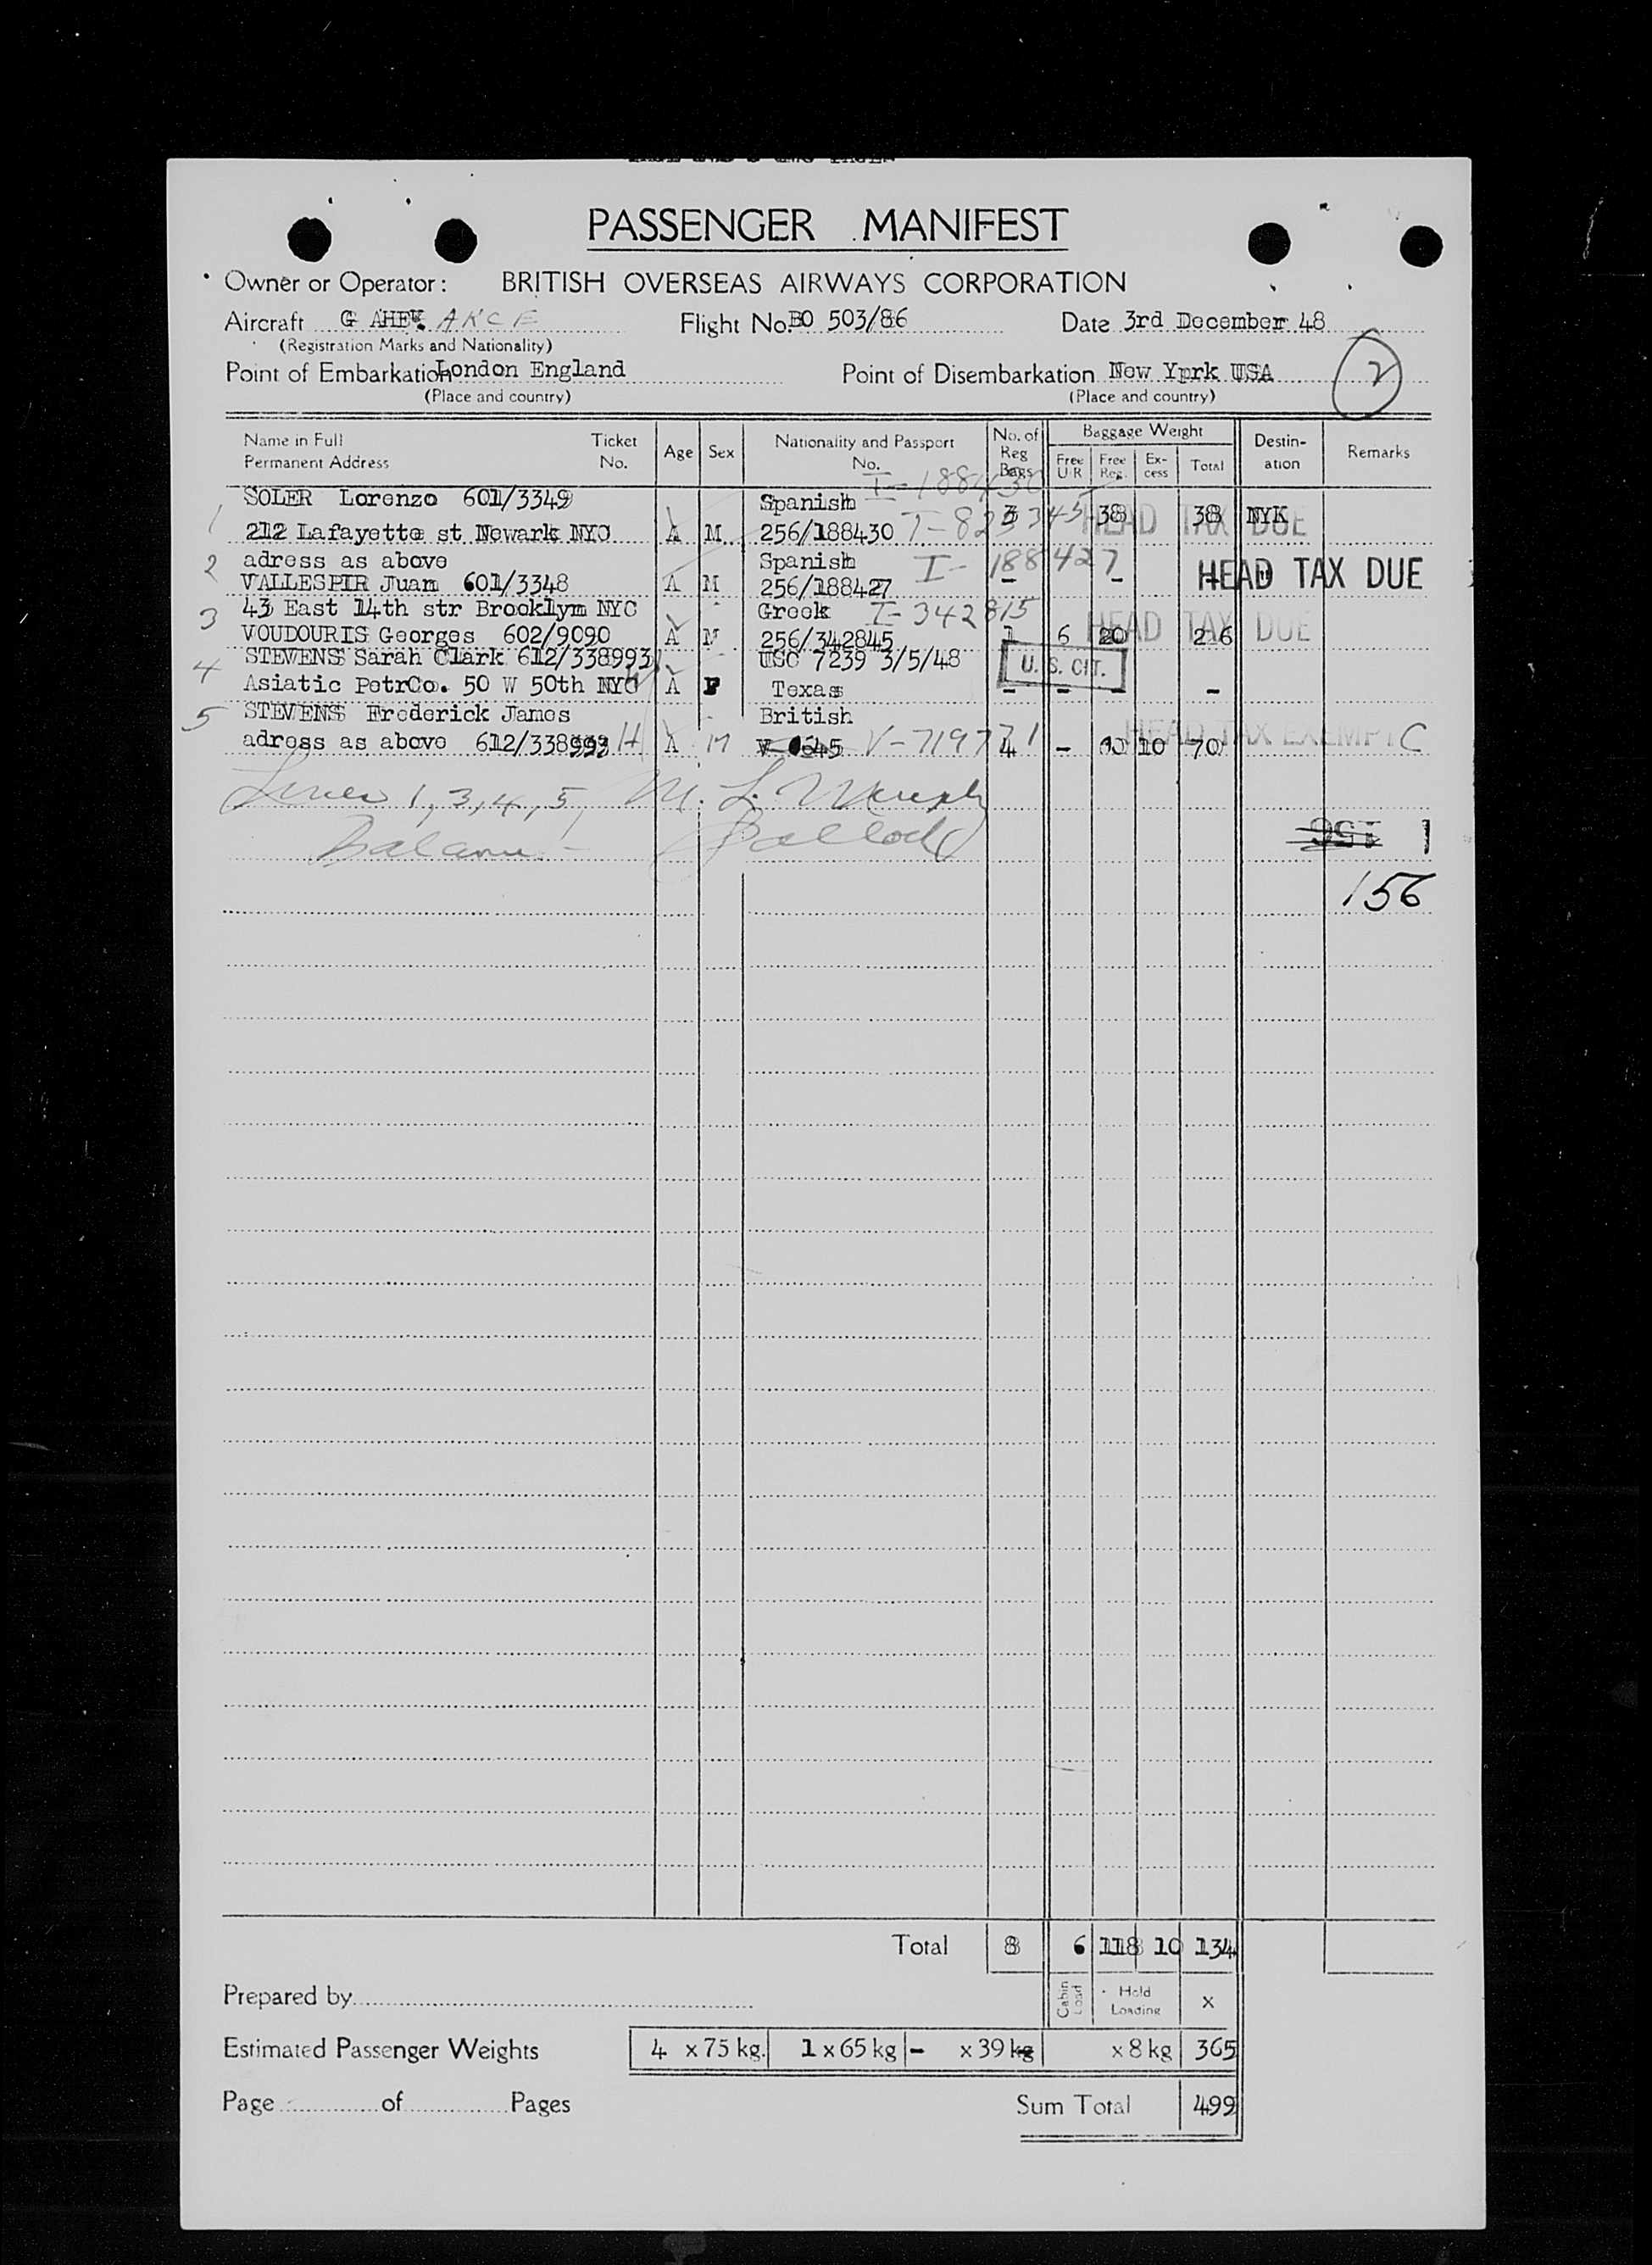 PASSENGER MANIFEST
Owner or Operator: BRITISH OVERSEAS AIRWAYS CORPORATION
Aircraft G AKCE Flight No. BO 503/86 Date 3rd December 48
(Registration Marks and Nationality)
Point of Embarkation London England Point of Disembarkation New Yprk USA 2
(Place and country) (Place and country)
Name in Full Permanent Address Ticket No. Age Sex Nationality and Passport No. No. of Reg Bags Baggage Weight Free U/R Free Reg. Ex-cess Total Destin-ation Remarks
SOLER Lorenzo 601/3349 Spanish I-188430
1 212 Lafayette st Newark NYC A M 256/188430 3 38 38 NYK HEAD TAX DUE
2 adress as above Spanish I-188427
VALLESPIR Juan 601/3348 A M 256/188427 - - HEAD TAX DUE
3 43 East 14th str Brooklym NYC Greek I-342815
VOUDOURIS Georges 602/9090 A M 256/342845 1 6 20 26 HEAD TAX DUE
4 STEVENS Sarah Clark 612/338993 USC 7239 3/5/48 U. S. CIT.
Asiatic PetrCo. 50 W 50th NYC A F Texas - - - -
5 STEVENS Frederick James British
adress as above A M V-719771 4 - 10 70 HEAD TAX EXEMPT C
Lines 1, 3, 4, 5, M. L. Murphy
Balance - Bullock
1
156
Total 8 6 118 10 134
Prepared by Cabin Load Hold Loading x
Estimated Passenger Weights 4 x 75 kg. 1 x 65 kg - x 39 kg x 8 kg 365
Page of Pages Sum Total 499